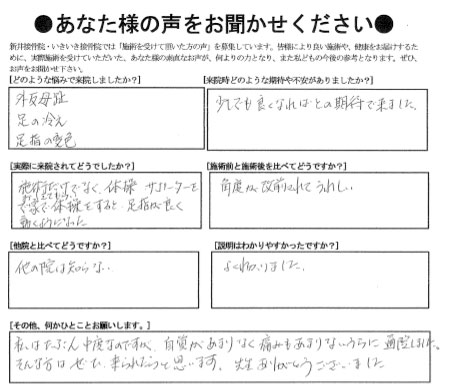 ●あなた様の声をお聞かせください●
新井接骨院・いきいき接骨院では「施術を受けて頂いた方の声」を募集しています。皆様により良い施術や、健康をお届けするため
に、実際施術を受けていただいた、あなた様の素直なお声が、何よりの力となり、また私どもの今後の参考となります。ぜひ、
お声をお聞かせ下さい。
[どのような悩みで来院しましたか？]
外反母趾
足の冷え
足指の変色
[来院時どのような期待や不安がありましたか？]
少しでも良くなればとの期待で来ました。
[実際に来院されてどうでしたか？]
施術だけでなく、体操 サポーターを
家で体操をすると、足指が良く
動くようになった
[施術前と施術後を比べてどうですか？]
角度が改善されてうれしい
[他院と比べてどうですか？]
他の院は知らない
[説明はわかりやすかったですか？]
よくわかりました。
[その他、何かひとことお願いします。]
私はたぶん中度なのですが、自覚があまりなく痛みもあまりないうちに通院しました。
そんな方はぜひ、来られたらと思います。先生ありがとうございました